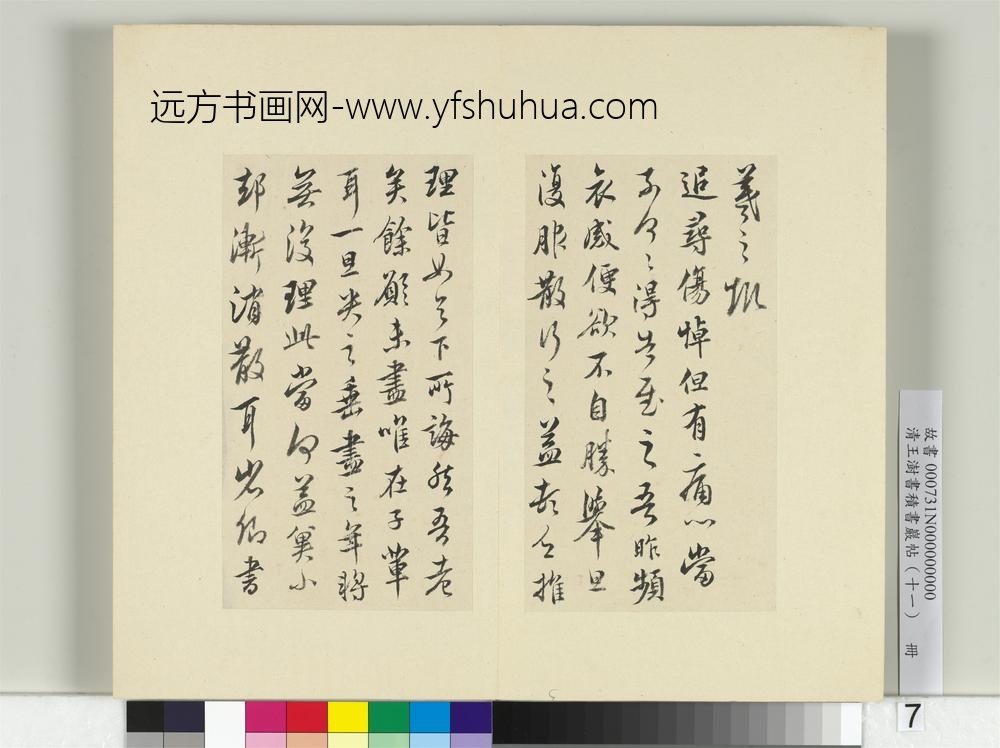 远方书画网-www.yfshuhua.com
羲之頓
追尋傷悼但有痛心當
奈何奈何得告慰之吾昨頻
哀感便欲不自勝舉旦
復服散行之益頓乏推
理皆如足下所誨然吾老
矣餘願未盡唯在子輩
耳一旦哭之垂盡之年將
無復理此當何益冀小
却漸消散耳省卿書
故書 000731N000000000
清王澍書積書巖帖(十一) 冊
7